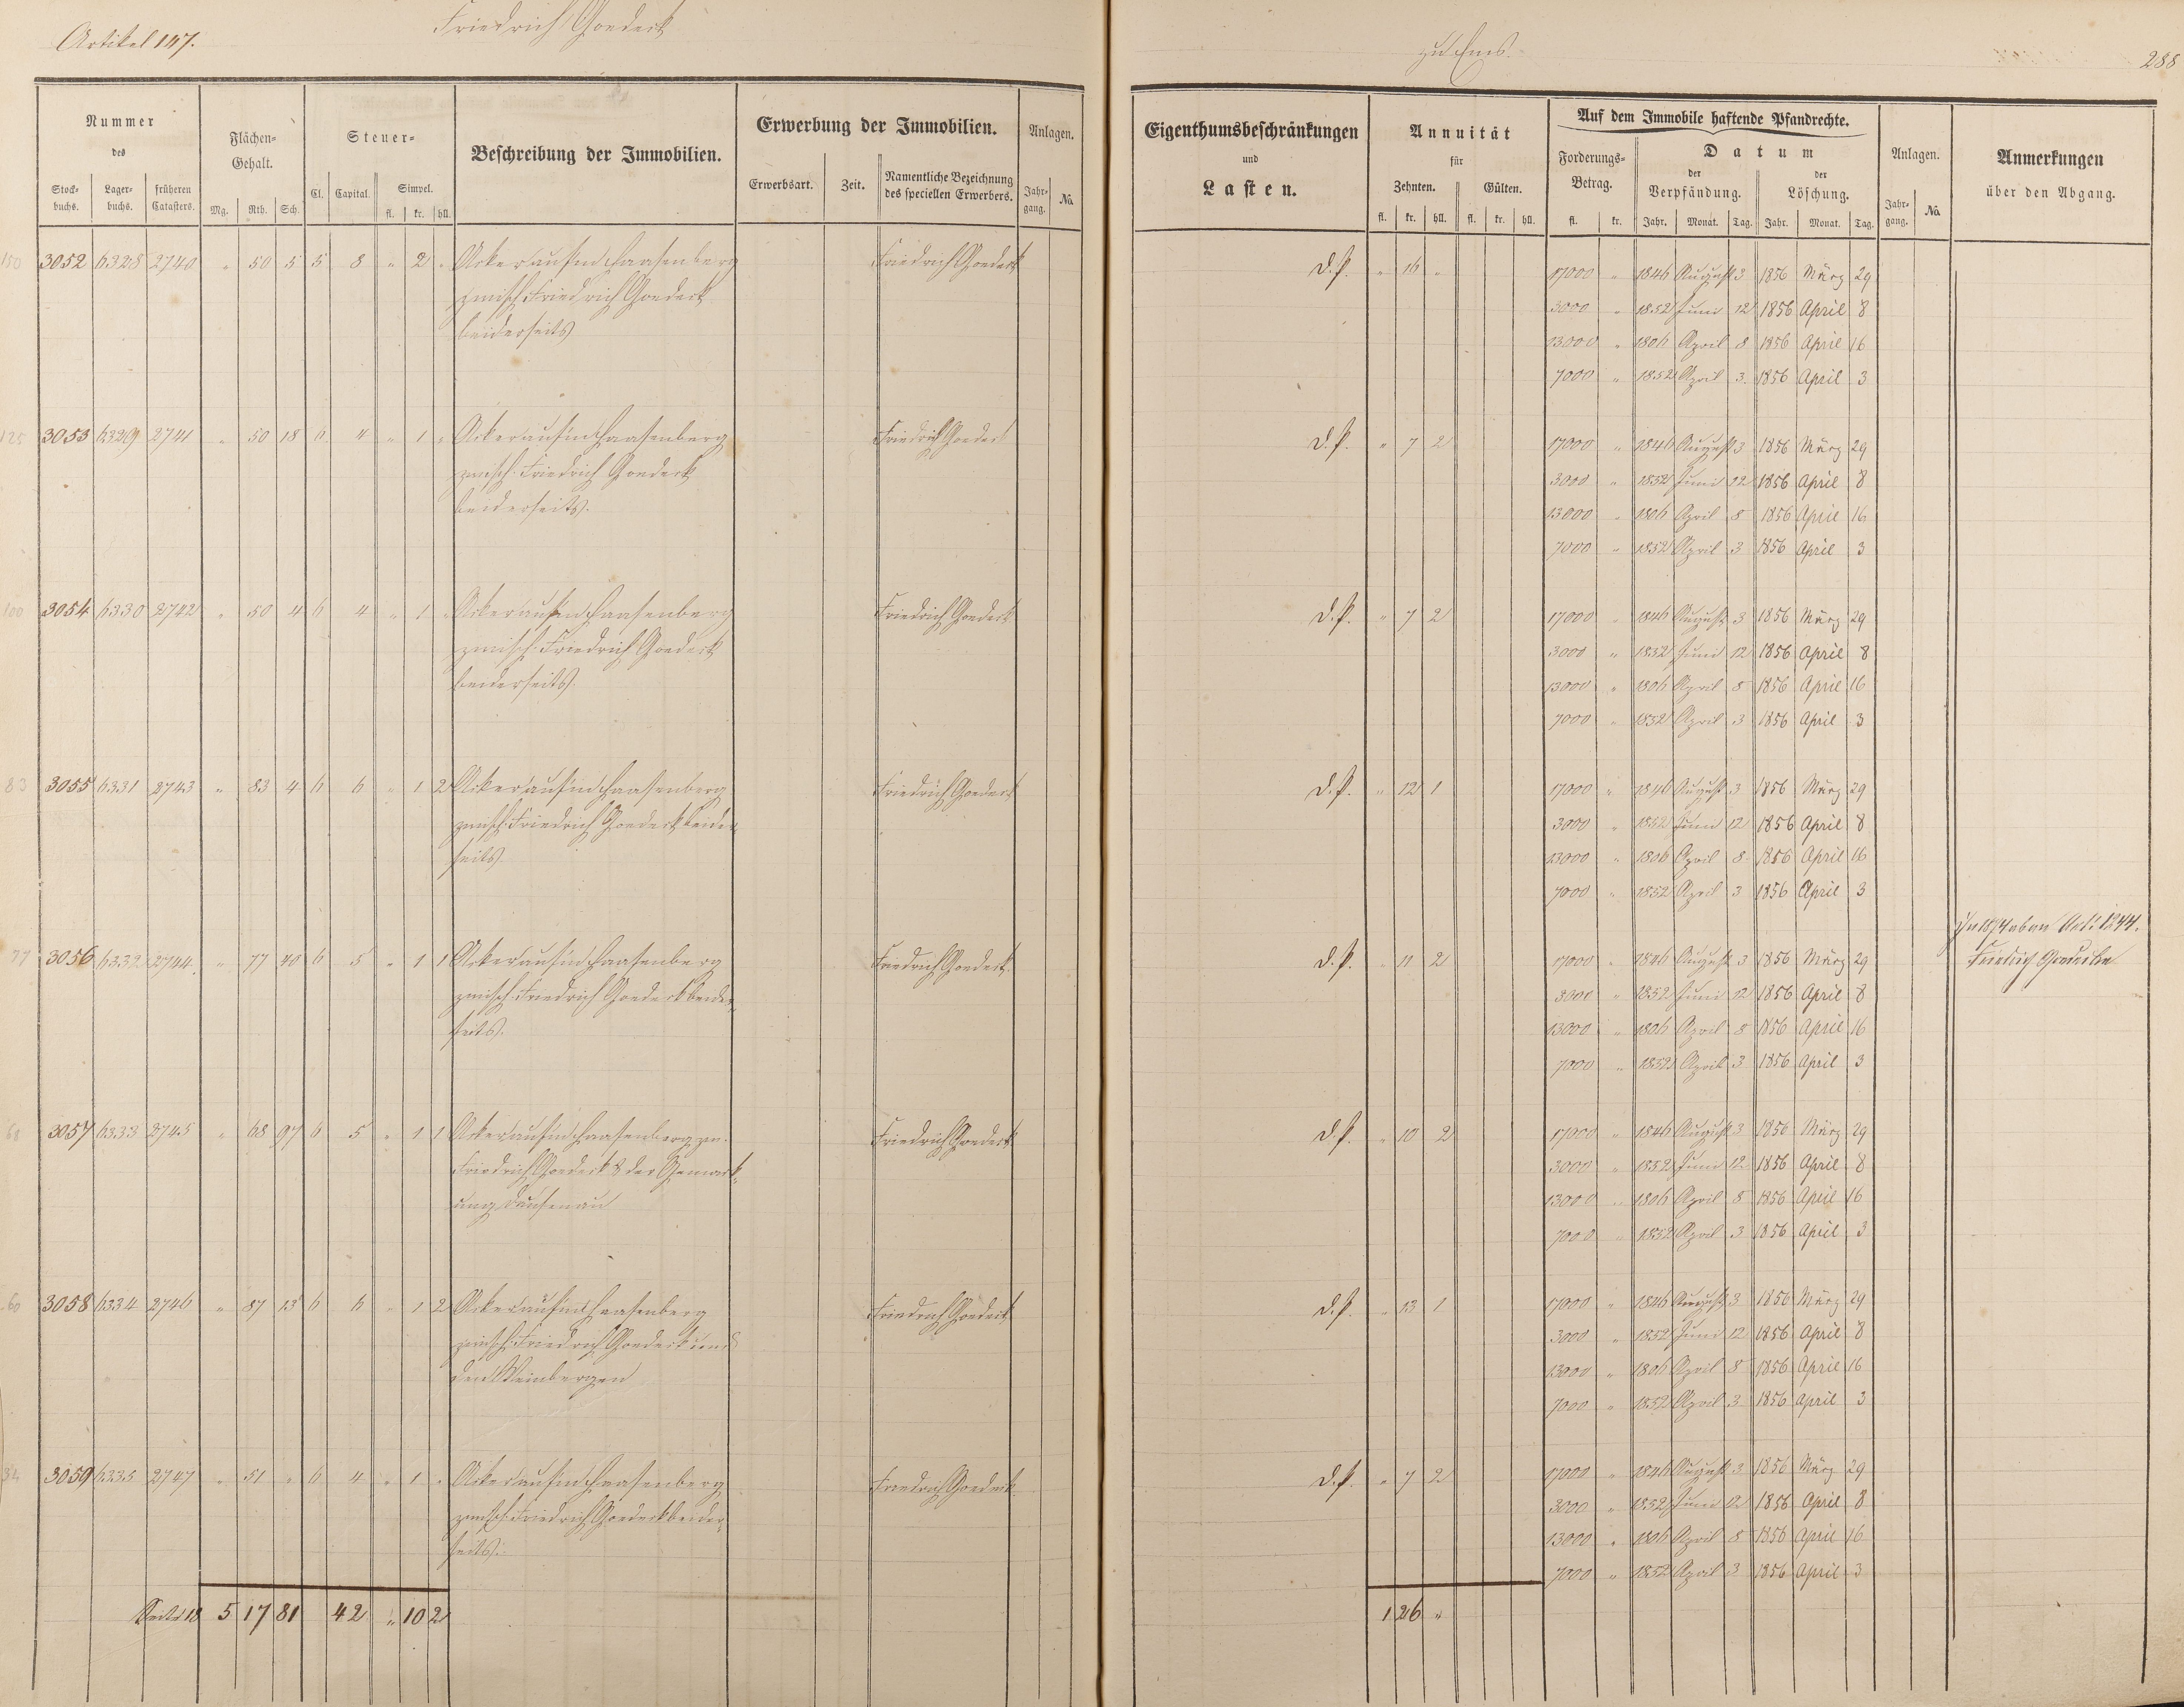 Artikel 147.
Friedrich Goedeck
zu Ems.
288
Nummer des
Stockbuchs. Lagerbuchs. früheren Catasters.
Flächen-Gehalt.
Mg. Rth. Sch.
Steuer-
Cl. Capital. Simpel.
fl. kr. hll.
Beschreibung der Immobilien.
Erwerbung der Immobilien.
Erwerbsart. Zeit. Namentliche Bezeichnung des speciellen Erwerbers.
Anlagen.
Jahrgang. No.
Eigenthumsbeschränkungen und Lasten.
Annuität für
Zehnten. Gülten.
fl. kr. hll. fl. kr. hll.
Auf dem Immobile haftende Pfandrechte.
Forderungs-Betrag.
fl. kr.
Datum
der Verpfändung. der Löschung.
Jahr. Monat. Tag. Jahr. Monat. Tag.
Anlagen.
Jahrgang. No.
Anmerkungen über den Abgang.
150 3052 6328 2740 " 50 5 5 8 " 2 " Acker auf'm Haasenberg Friedrich Goedeck d.p. " 16 " 17000 " 1846 August 3 1856 März 29
zwisch. Friedrich Goedeck 3000 " 1852 Juni 12 1856 April 8
beiderseits 13000 " 1806 April 8 1856 April 16
7000 " 1852 April 3 1856 April 3
125 3053 6329 2741 " 50 18 6 4 " 1 " Acker auf'm Haasenberg Friedrich Goedeck d.p. " 7 2 17000 " 1846 August 3 1856 März 29
zwisch. Friedrich Goedeck 3000 " 1852 Juni 12 1856 April 8
beiderseits. 13000 " 1806 April 8 1856 April 16
7000 " 1852 April 3 1856 April 3
100 3054 6330 2742 " 50 4 6 4 " 1 " Acker auf'm Haasenberg Friedrich Goedeck d.p. " 7 2 17000 " 1846 August 3 1856 März 29
zwisch. Friedrich Goedeck 3000 " 1852 Juni 12 1856 April 8
beiderseits. 13000 " 1806 April 8 1856 April 16
7000 " 1852 April 3 1856 April 3
83 3055 6331 2743 " 83 4 6 6 " 1 2 Acker auf'm Haasenberg Friedrich Goedeck d.p. " 12 1 17000 " 1846 August 3 1856 März 29
zwisch. Friedrich Goedeck beider- 3000 " 1852 Juni 12 1856 April 8
seits. 13000 " 1806 April 8 1856 April 16
7000 " 1852 April 3 1856 April 3
77 3056 6332 2744 " 77 40 6 5 " 1 1 Acker auf'm Haasenberg Friedrich Goedeck d.p. " 11 2 17000 " 1846 August 3 1856 März 29 1844. Friedrich
zwisch. Friedrich Goedeck beider- 3000 " 1852 Juni 12 1856 April 8
seits. 13000 " 1806 April 8 1856 April 16
7000 " 1852 April 3 1856 April 3
68 3057 6333 2745 " 68 97 6 5 " 1 1 Acker auf'm Haasenberg zw. Friedrich Goedeck d.p. " 10 2 17000 " 1846 August 3 1856 März 29
Friedrich Goedeck & der Gemark- 3000 " 1852 Juni 12 1856 April 8
ung Dausenau 13000 " 1806 April 8 1856 April 16
7000 " 1852 April 3 1856 April 3
60 3058 6334 2746 " 87 13 6 6 " 1 2 Acker auf'm Haasenberg Friedrich Goedeck d.p. " 13 1 17000 " 1846 August 3 1856 März 29
zwisch. Friedrich Goedeck und 3000 " 1852 Juni 12 1856 April 8
den Weinbergen 13000 " 1806 April 8 1856 April 16
7000 " 1852 April 3 1856 April 3
34 3059 6335 2747 " 51 " 6 4 " 1 " Acker auf'm Haasenberg Friedrich Goedeck d.p. " 7 2 17000 " 1846 August 3 1856 März 29
zwisch. Friedrich Goedeck beider- 3000 " 1852 Juni 12 1856 April 8
seits. 13000 " 1806 April 8 1856 April 16
7000 " 1852 April 3 1856 April 3
Seite 18 5 17 81 42 " 10 2 1 26 "